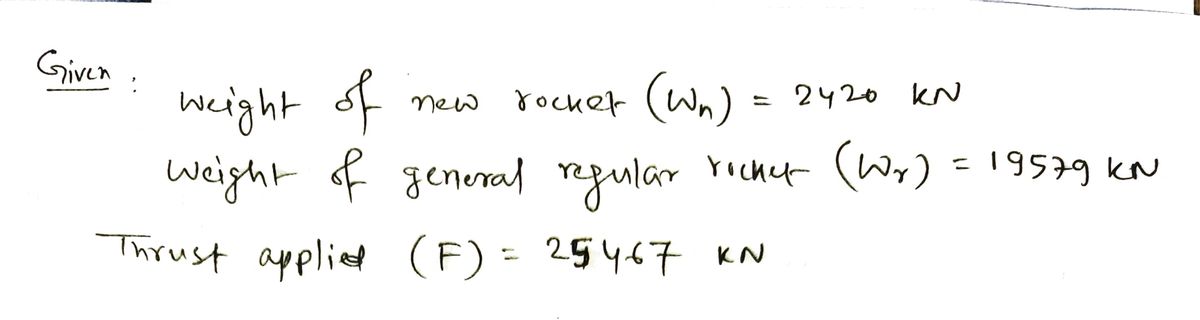 Given :
weight of new rocket (Wn) = 2420 kN
weight of general regular rocket (Wr) = 19579 kN
Thrust applied (F) = 25467 KN